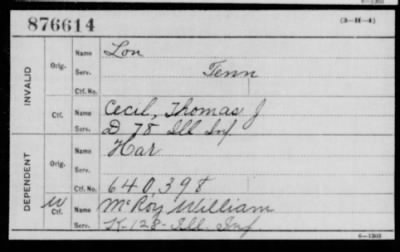 876614 (3-H-4)
INVALID
Orig. Name Lon
Serv. Tenn
Ctf. No.
Ctf. Name Cecil, Thomas J
Serv. D 78 Ill Inf
DEPENDENT
Orig. Name Har
Serv.
Ctf. No. 640,398
W Ctf. Name McRoy William
Serv. K-128- Ill. Inf
6-1303